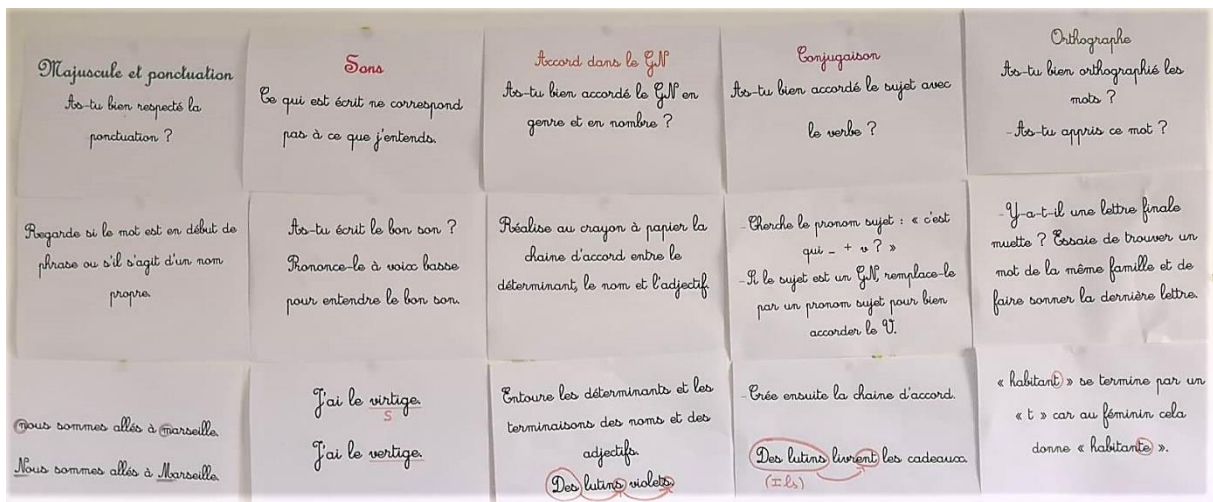 Majuscule et ponctuation
As-tu bien respecté la
ponctuation ?
Regarde si le mot est en début de
phrase ou s'il s'agit d'un nom
propre.
nous sommes allés à marseille.
Nous sommes allés à Marseille.
Sons
Ce qui est écrit ne correspond
pas à ce que j'entends.
As-tu écrit le bon son ?
Prononce-le à voix basse
pour entendre le bon son.
J'ai le virtige.
S
J'ai le vertige.
Accord dans le GN
As-tu bien accordé le GN en
genre et en nombre ?
Réalise au crayon à papier la
chaine d'accord entre le
déterminant, le nom et l'adjectif.
Entoure les déterminants et les
terminaisons des noms et des
adjectifs.
Des lutins violets.
Conjugaison
As-tu bien accordé le sujet avec
le verbe ?
- Cherche le pronom sujet : « c'est
qui _ + v ? »
- Si le sujet est un GN, remplace-le
par un pronom sujet pour bien
accorder le V.
- Crée ensuite la chaine d'accord.
Des lutins livrent les cadeaux.
(Ils)
Orthographe
As-tu bien orthographié les
mots ?
- As-tu appris ce mot ?
- Y-a-t-il une lettre finale
muette ? Essaie de trouver un
mot de la même famille et de
faire sonner la dernière lettre.
« habitant » se termine par un
« t » car au féminin cela
donne « habitante ».